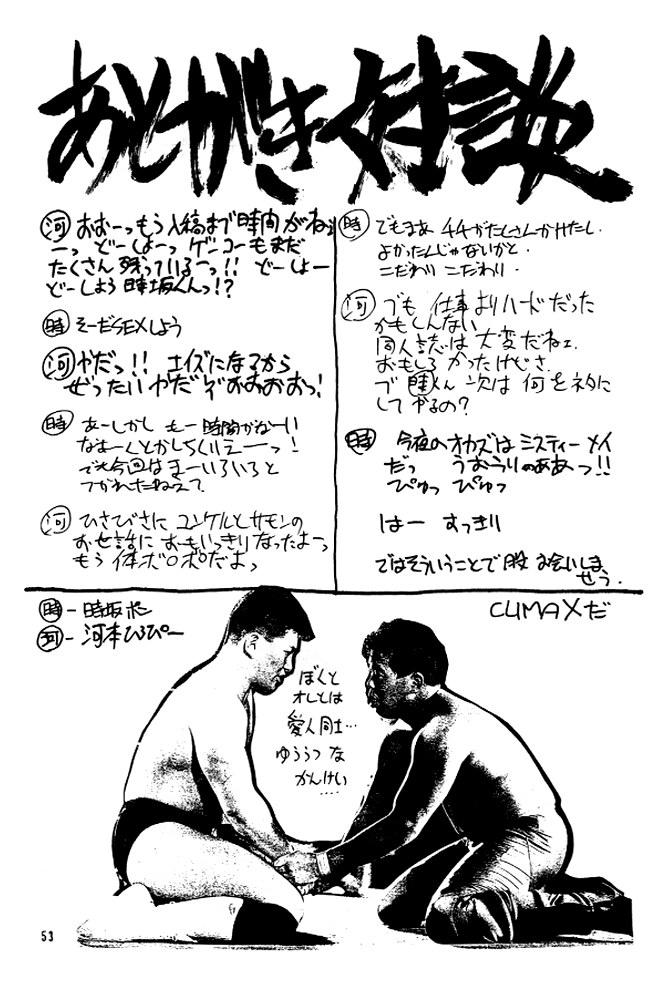 あとがき対談
河 おおーっもう入稿まで時間がねぇ
ーっ どーしよーっ ゲンコーもまだ
たくさん残っているーっ!! どーしよー
どーしよう時坂くんっ!?
時 そーだSEXしよう
河 やだっ!! エイズになるから
ぜったいやだぞおおおおっ!
時 あーしかし もー時間がねーい
なまーくとかしちくりえーーっ!
でも今回はまーいろいろと
つかれたねえて。
河 ひさびさに ユンケルとサモンの
お世話に おーもいっきりなったよーっ
もう 体ボロボロだよっ
時 でもまあ チチがたくさんかけたし.
よかったんじゃないかと.
こだわり こだわり.
河 でも 仕事よりハードだった
かもしんない
同人誌は大変だねェ.
おもしろかったけどさ.
で 時くん 次は何をネタに
してやるの?
時 今夜のオカズはミスティーメイ
だっ うおうりゃああーっ!!
ぴゅっ ぴゅっ
はー すっきり
ではそういうことで 股 お会いしま
せう.
時-時坂ポン
河-河本ひろぴー
CLIMAXだ
ぼくと
オレとは
愛人同士…
ゆううつな
かんけい
‥‥
53